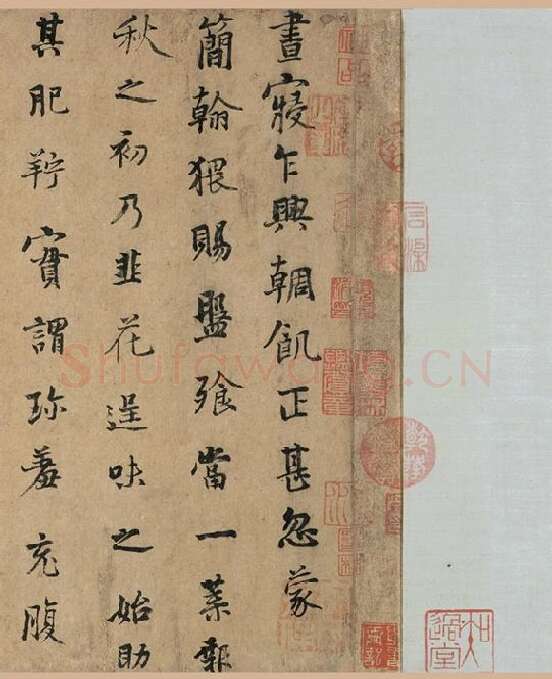 晝寢乍興輖飢正甚忽蒙
簡翰猥賜盤飧當一葉報
秋之初乃韭花逞味之始助
其肥羜實謂珍羞充腹